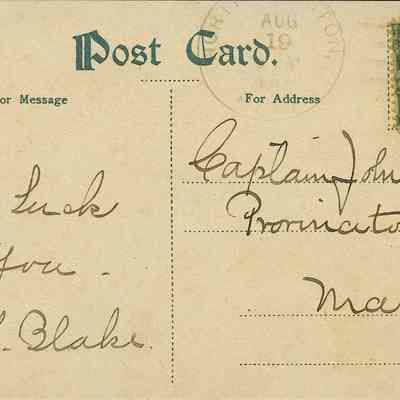 Post Card.
AUG
19
or Message
For Address
Luck
You.
Blake.
Captain John
Ma